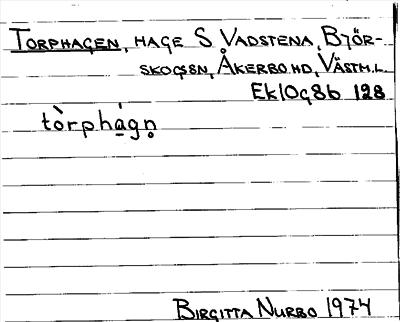 TORPHAGEN, HAGE S VADSTENA, BJÖR-
SKOGSSN, ÅKERBO HD, VÄSTM.L
Ek10g8b 128
tòrphág̲n̥
BIRGITTA NURBO 1974